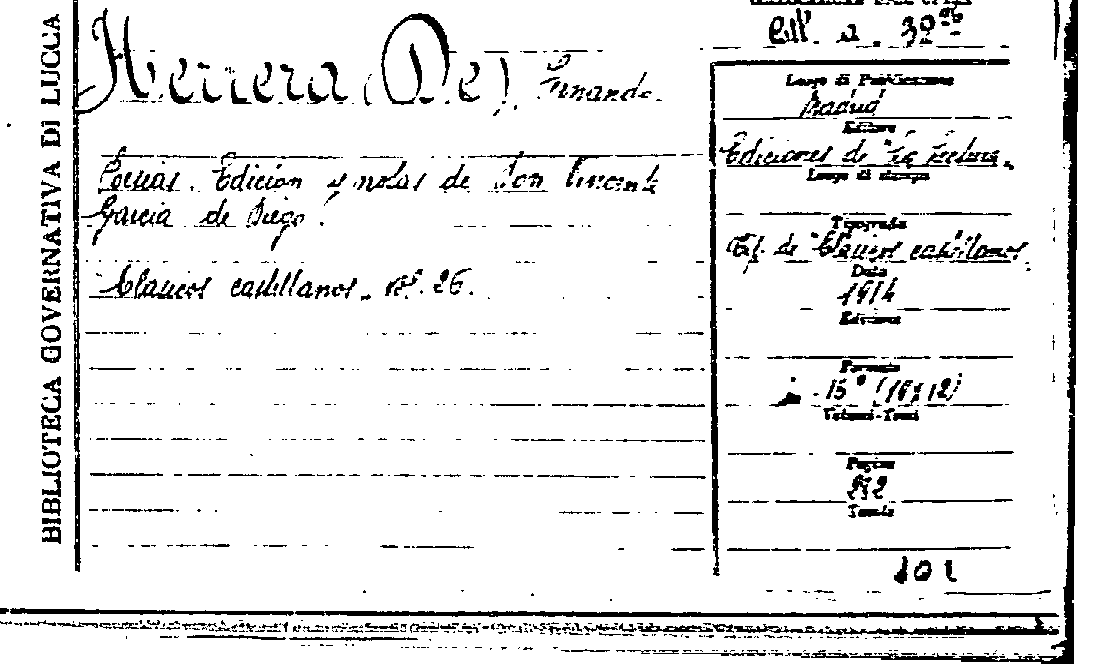 BIBLIOTECA GOVERNATIVA DI LUCCA
Herrera (De), Fernando.
Poesias. Edicion y notas de Don Vincente
Garcia de Diego.
Clasicos castillanos. nº. 26.
Coll. a. 39
Luogo di Pubblicazione
Madrid
Editore
Ediciones de "La Lectura".
Luogo di stampa
Tipografia
Tip. de "Clasicos castillanos.
Data
1914
Edizione
Formato
in-15º (18x12)
Volumi-Tomi
Pagine
292
Tavole
101